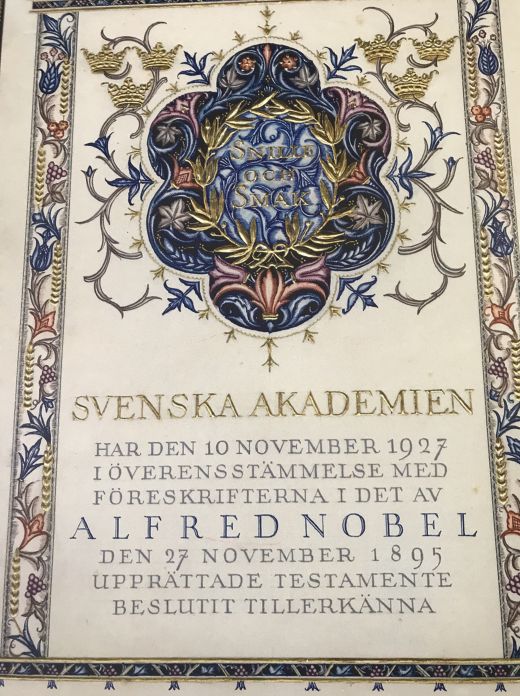 SNILLE
OCH
SMAK
SVENSKA AKADEMIEN
HAR DEN 10 NOVEMBER 1927
I ÖVERENSSTÄMMELSE MED
FÖRESKRIFTERNA I DET AV
ALFRED NOBEL
DEN 27 NOVEMBER 1895
UPPRÄTTADE TESTAMENTE
BESLUTIT TILLERKÄNNA